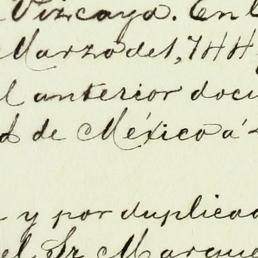 Vizcaya. En l
Marzo del, 744
l anterior docu
d de México á
y por duplicad
el Sr Marque